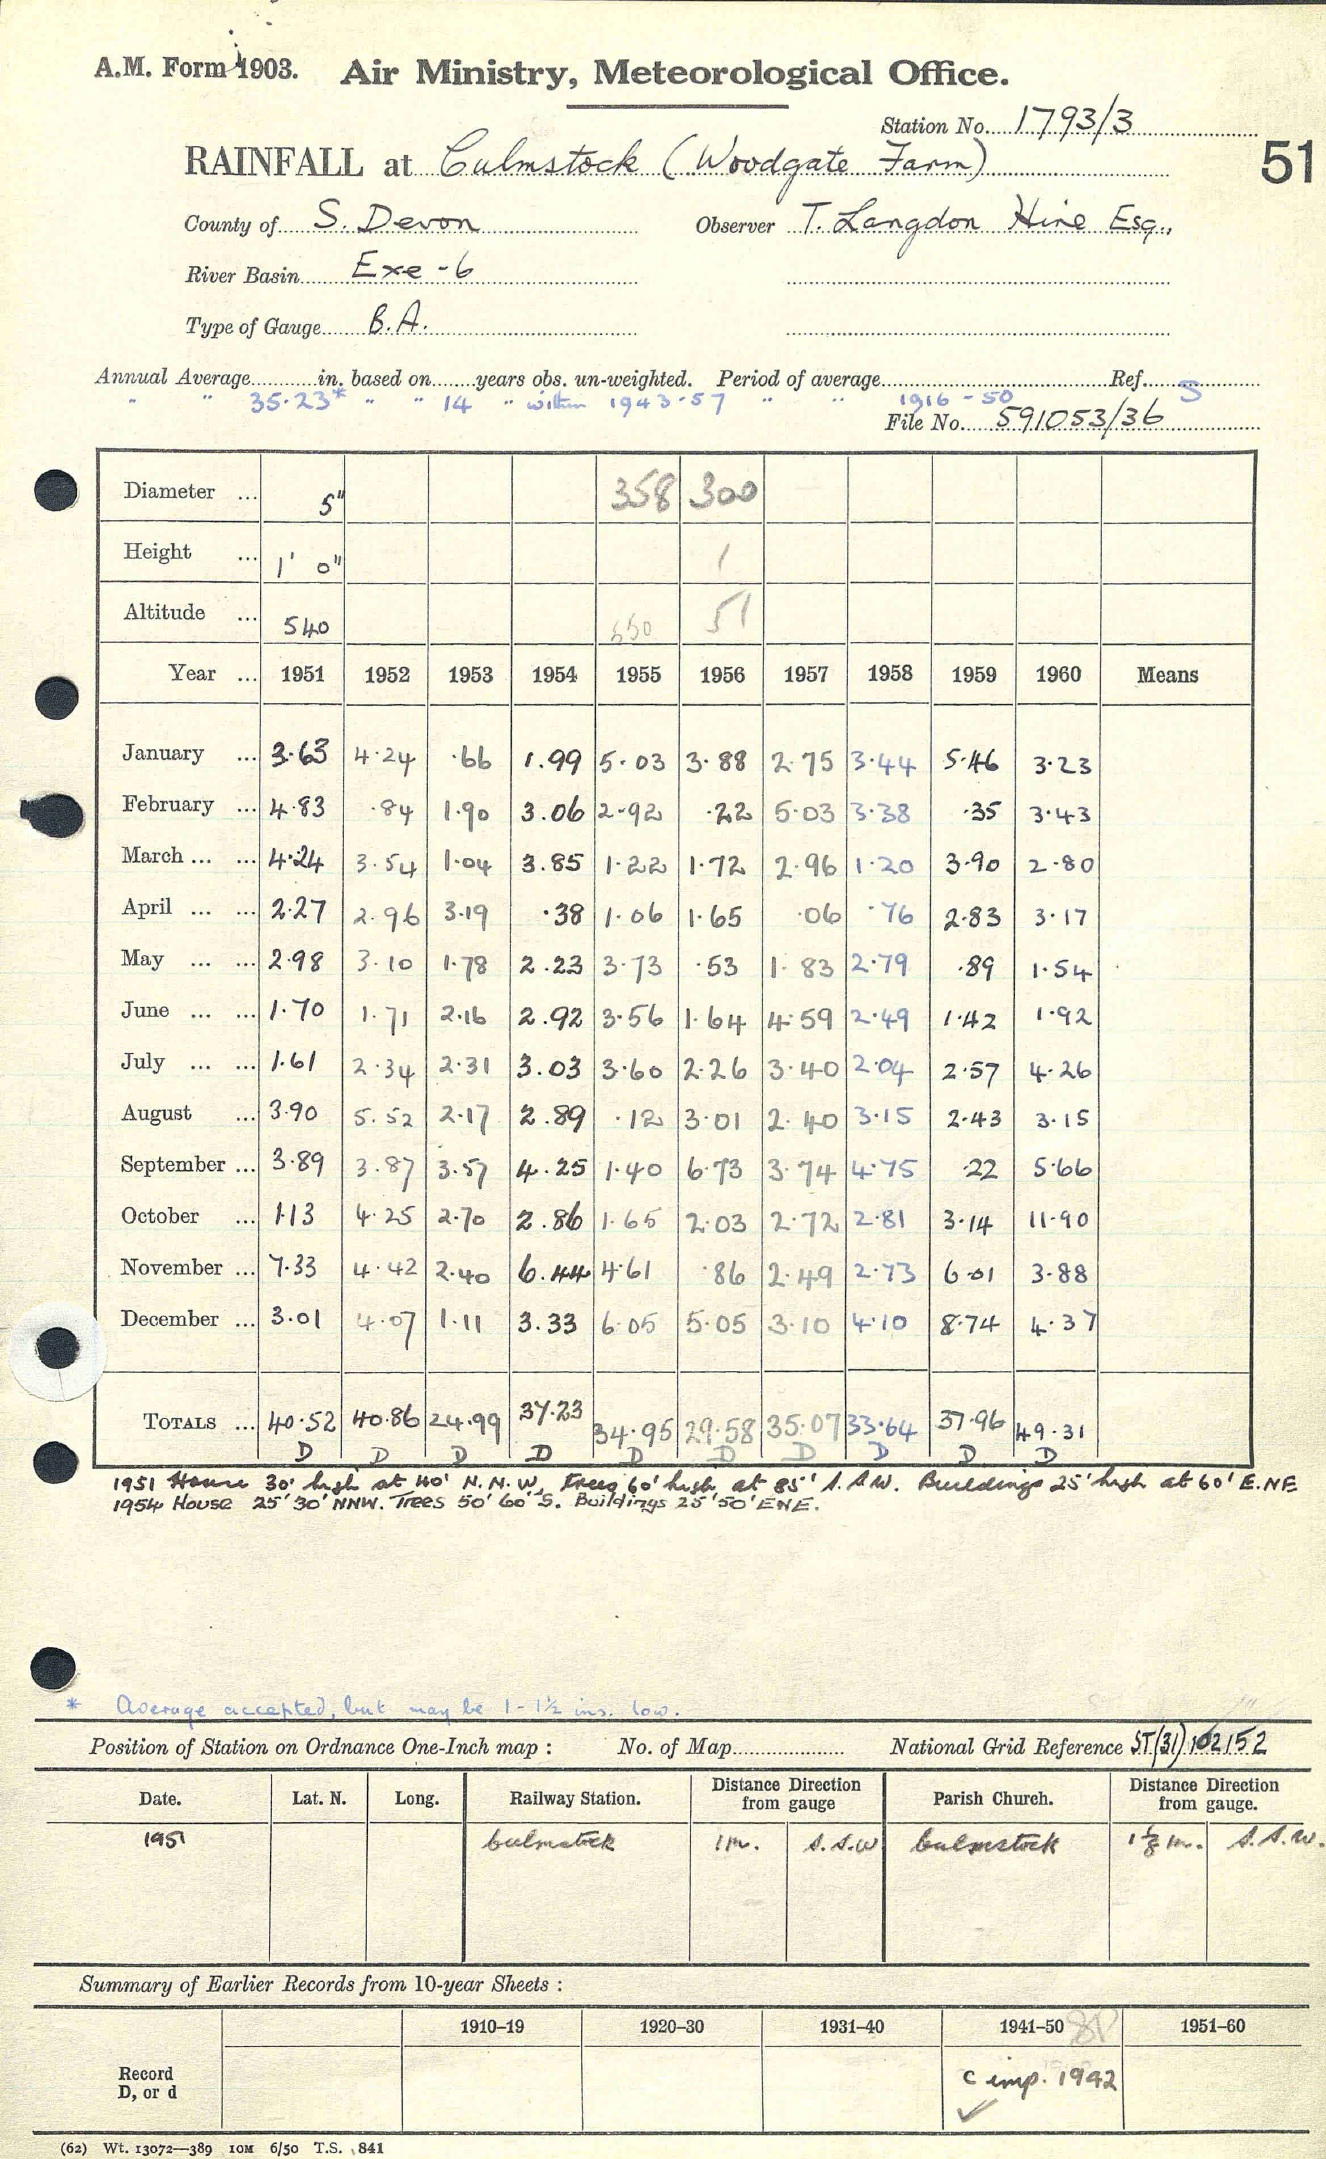 A.M. Form 1903. Air Ministry, Meteorological Office.
Station No. 1793/3
RAINFALL at Culmstock (Woodgate Farm)
51
County of S. Devon Observer T. Langdon Hine Esq.,
River Basin Exe - 6
Type of Gauge B.A.
Annual Average in. based on years obs. un-weighted. Period of average Ref. S
" " 35.23* " " 14 " within 1943-57 " " 1916-50
File No. 591053/36
Diameter ... 5" 358 300
Height ... 1' 0" 1
Altitude ... 540 550 51
Year ... 1951 1952 1953 1954 1955 1956 1957 1958 1959 1960 Means
January ... 3.63 4.24 .66 1.99 5.03 3.88 2.75 3.44 5.46 3.23
February ... 4.83 .84 1.90 3.06 2.92 .22 5.03 3.38 .35 3.43
March ... ... 4.24 3.54 1.04 3.85 1.22 1.72 2.96 1.20 3.90 2.80
April ... ... 2.27 2.96 3.19 .38 1.06 1.65 .06 .76 2.83 3.17
May ... ... 2.98 3.10 1.78 2.23 3.73 .53 1.83 2.79 .89 1.54
June ... ... 1.70 1.71 2.16 2.92 3.56 1.64 4.59 2.49 1.42 1.92
July ... ... 1.61 2.34 2.31 3.03 3.60 2.26 3.40 2.04 2.57 4.26
August ... 3.90 5.52 2.17 2.89 .12 3.01 2.40 3.15 2.43 3.15
September ... 3.89 3.87 3.57 4.25 1.40 6.73 3.74 4.75 .22 5.66
October ... 1.13 4.25 2.70 2.86 1.65 2.03 2.72 2.81 3.14 11.90
November ... 7.33 4.42 2.40 6.44 4.61 .86 2.49 2.73 6.01 3.88
December ... 3.01 4.07 1.11 3.33 6.05 5.05 3.10 4.10 8.74 4.37
TOTALS ... 40.52 40.86 24.99 37.23 34.95 29.58 35.07 33.64 37.96 49.31
D D D D D D D D D D
1951 House 30' high at 40' N.N.W, trees 60' high at 85' S.S.W. Buildings 25' high at 60' E.NE
1954 House 25' 30' NNW. Trees 50' 60' S. Buildings 25' 50' ENE.
* Average accepted, but may be 1 - 1½ ins. low.
Position of Station on Ordnance One-Inch map : No. of Map National Grid Reference ST(31)102152
Date. Lat. N. Long. Railway Station. Distance Direction from gauge Parish Church. Distance Direction from gauge.
1951 Culmstock 1m. S.S.W Culmstock 1⅛ m. S.S.W.
Summary of Earlier Records from 10-year Sheets :
1910–19 1920–30 1931–40 1941–50 1951–60
Record D, or d
C imp. 1942
✓
(62) Wt. 13072—389 10M 6/50 T.S. 841